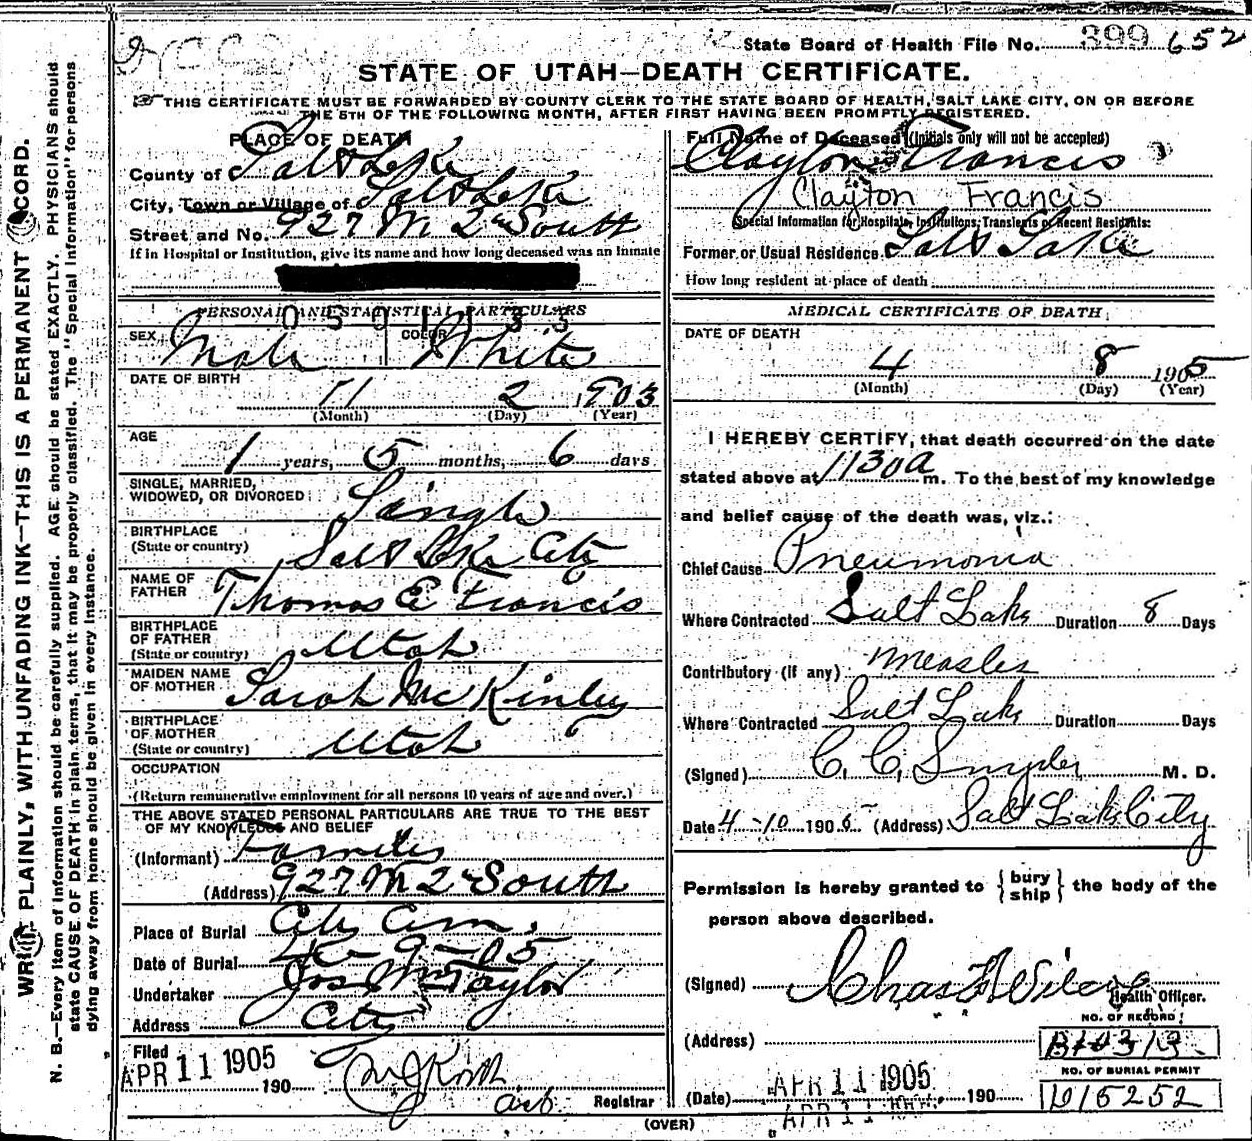 State Board of Health File No. 399 652
STATE OF UTAH—DEATH CERTIFICATE.
THIS CERTIFICATE MUST BE FORWARDED BY COUNTY CLERK TO THE STATE BOARD OF HEALTH, SALT LAKE CITY, ON OR BEFORE
THE 5TH OF THE FOLLOWING MONTH, AFTER FIRST HAVING BEEN PROMPTLY REGISTERED.
WRITE PLAINLY, WITH UNFADING INK—THIS IS A PERMANENT RECORD.
N. B.—Every item of information should be carefully supplied. AGE should be stated EXACTLY. PHYSICIANS should
state CAUSE OF DEATH in plain terms, that it may be properly classified. The "Special Information" for persons
dying away from home should be given in every instance.
PLACE OF DEATH
County of Salt Lake
City, Town or Village of Salt Lake
Street and No. 927 W 2nd South
If in Hospital or Institution, give its name and how long deceased was an inmate
PERSONAL AND STATISTICAL PARTICULARS
SEX Male COLOR White
DATE OF BIRTH
11 2 1903
(Month) (Day) (Year)
AGE
1 years, 5 months, 6 days
SINGLE, MARRIED,
WIDOWED, OR DIVORCED Single
BIRTHPLACE
(State or country) Salt Lake City
NAME OF
FATHER Thomas E Francis
BIRTHPLACE
OF FATHER
(State or country) Utah
MAIDEN NAME
OF MOTHER Sarah McKinley
BIRTHPLACE
OF MOTHER
(State or country) Utah
OCCUPATION
(Return remunerative employment for all persons 10 years of age and over.)
THE ABOVE STATED PERSONAL PARTICULARS ARE TRUE TO THE BEST
OF MY KNOWLEDGE AND BELIEF
(Informant) Families
(Address) 927 W 2nd South
Place of Burial City Cem.
Date of Burial 4-9-05
Undertaker Jos Wm Taylor
Address City
Filed
APR 11 1905 190
Registrar
Full Name of Deceased (Initials only will not be accepted)
Clayton Francis
Clayton Francis
Special Information for Hospitals, Institutions, Transients or Recent Residents:
Former or Usual Residence Salt Lake
How long resident at place of death
MEDICAL CERTIFICATE OF DEATH
DATE OF DEATH
4 8 1905
(Month) (Day) (Year)
I HEREBY CERTIFY, that death occurred on the date
stated above at 1130 a m. To the best of my knowledge
and belief cause of the death was, viz.:
Chief Cause Pneumonia
Where Contracted Salt Lake Duration 8 Days
Contributory (if any) Measles
Where Contracted Salt Lake Duration Days
(Signed) C. C. Snyder M. D.
Date 4-10 1905 (Address) Salt Lake City
Permission is hereby granted to {bury ship} the body of the
person above described.
(Signed) Chas F Wilcox
Health Officer.
NO. OF RECORD
(Address)
NO. OF BURIAL PERMIT
(Date) APR 11 1905 190 D15252
APR 11
(OVER)